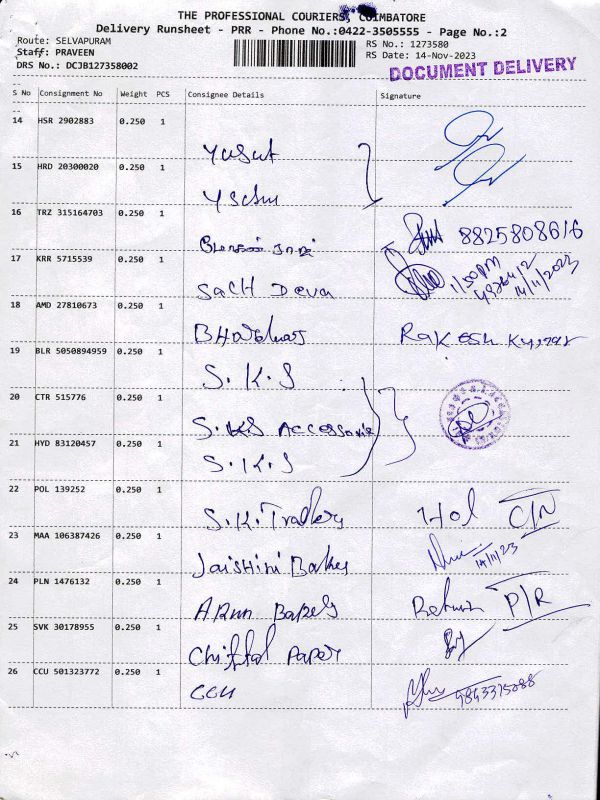 THE PROFESSIONAL COURIERS, COIMBATORE
Delivery Runsheet - PRR - Phone No.:0422-3505555 - Page No.:2
Route: SELVAPURAM
RS No.: 1273580
Staff: PRAVEEN
RS Date: 14-Nov-2023
DRS No.: DCJB127358002
DOCUMENT DELIVERY
S No Consignment No Weight PCS Consignee Details Signature
14 HSR 2902883 0.250 1
15 HRD 20300020 0.250 1
16 TRZ 315164703 0.250 1 8825808616
17 KRR 5715539 0.250 1 Sach Deva 1/50PM 14/11/2023
18 AMD 27810673 0.250 1 Rakesh Kumar
19 BLR 5050894959 0.250 1 S.K.S
20 CTR 515776 0.250 1 S.KS Accessorie
21 HYD 83120457 0.250 1 S.K.S
22 POL 139252 0.250 1 S.K. Traders Hol C/N
23 MAA 106387426 0.250 1 Jaishini Bakes 14/11/23
24 PLN 1476132 0.250 1 Arun Return P/R
25 SVK 30178955 0.250 1 Paper
26 CCU 501323772 0.250 1 CCU